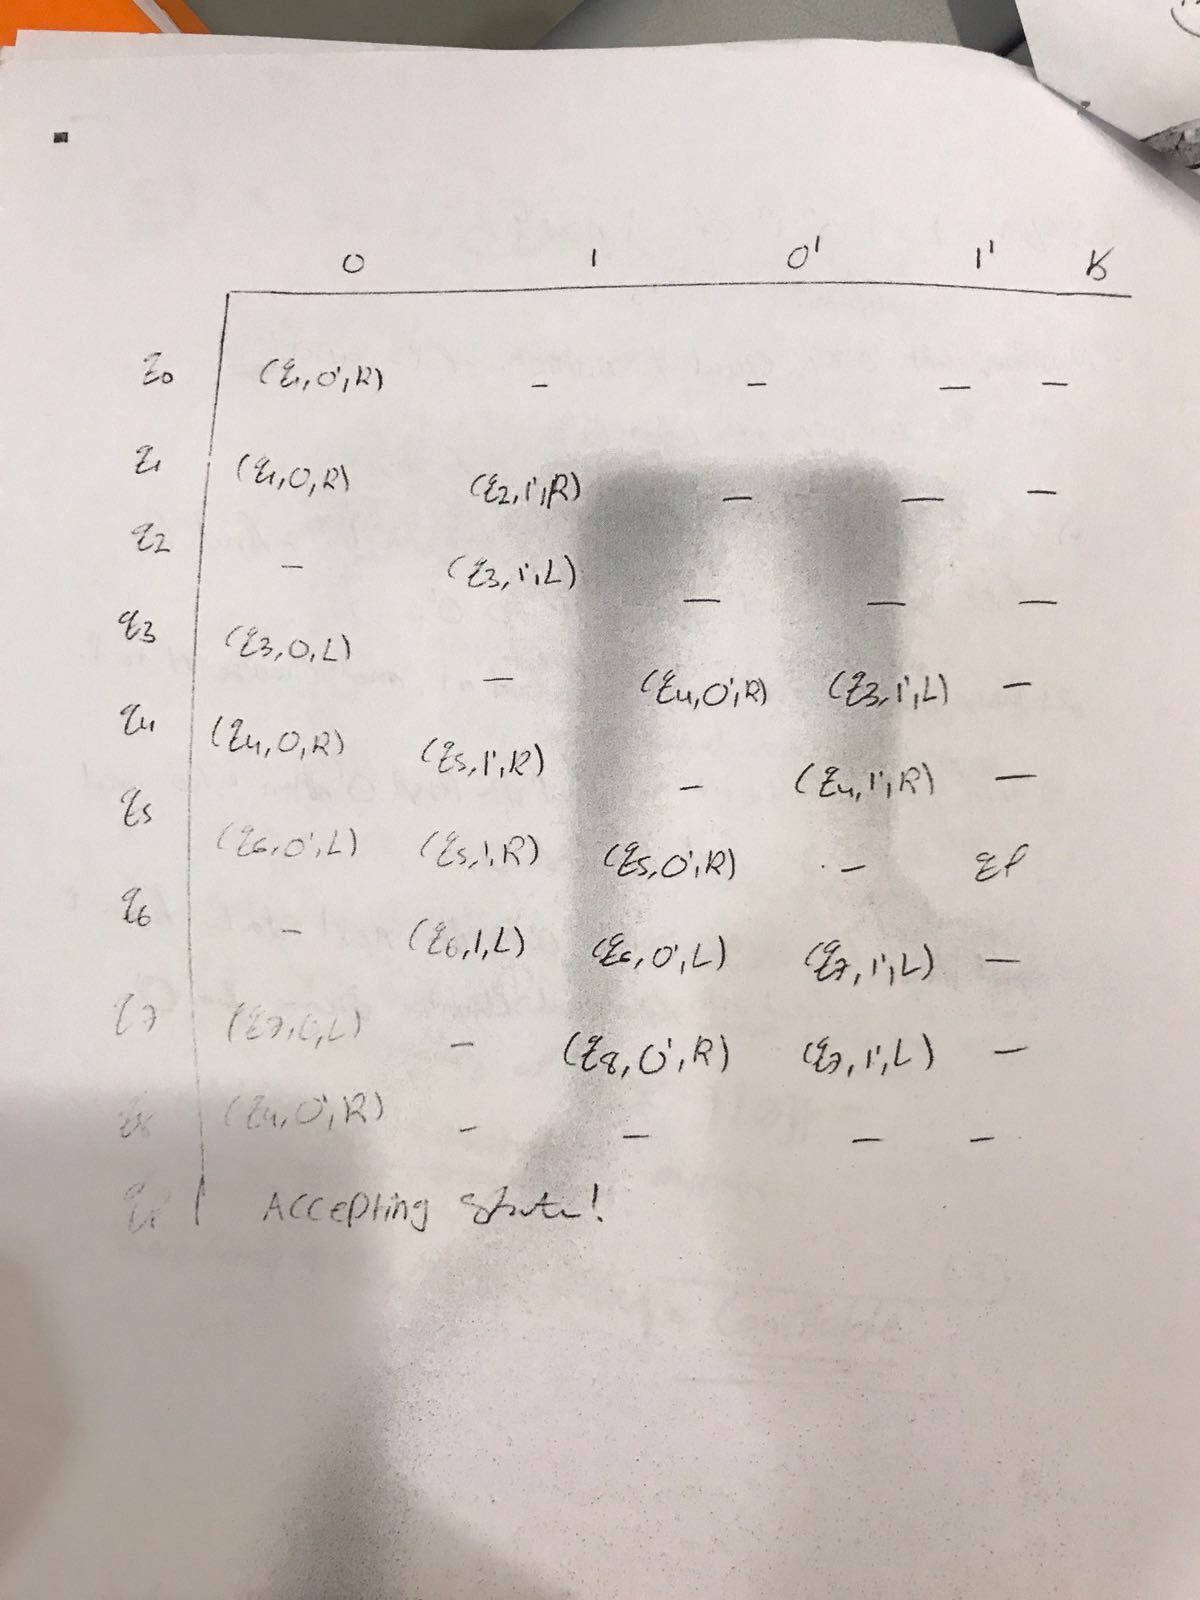 0 1 0' 1' ƀ
q0 (q1,0',R) – – – –
q1 (q1,0,R) (q2,1',R) – – –
q2 – (q3,1',L) – – –
q3 (q3,0,L) – (q4,0',R) (q3,1',L) –
q4 (q4,0,R) (q5,1',R) – (q4,1',R) –
q5 (q6,0',L) (q5,1,R) (q5,0',R) – qf
q6 – (q6,1,L) (q6,0',L) (q7,1',L) –
q7 (q7,0,L) – (q8,0',R) (q7,1',L) –
q8 (q4,0',R) – – – –
qf Accepting state!